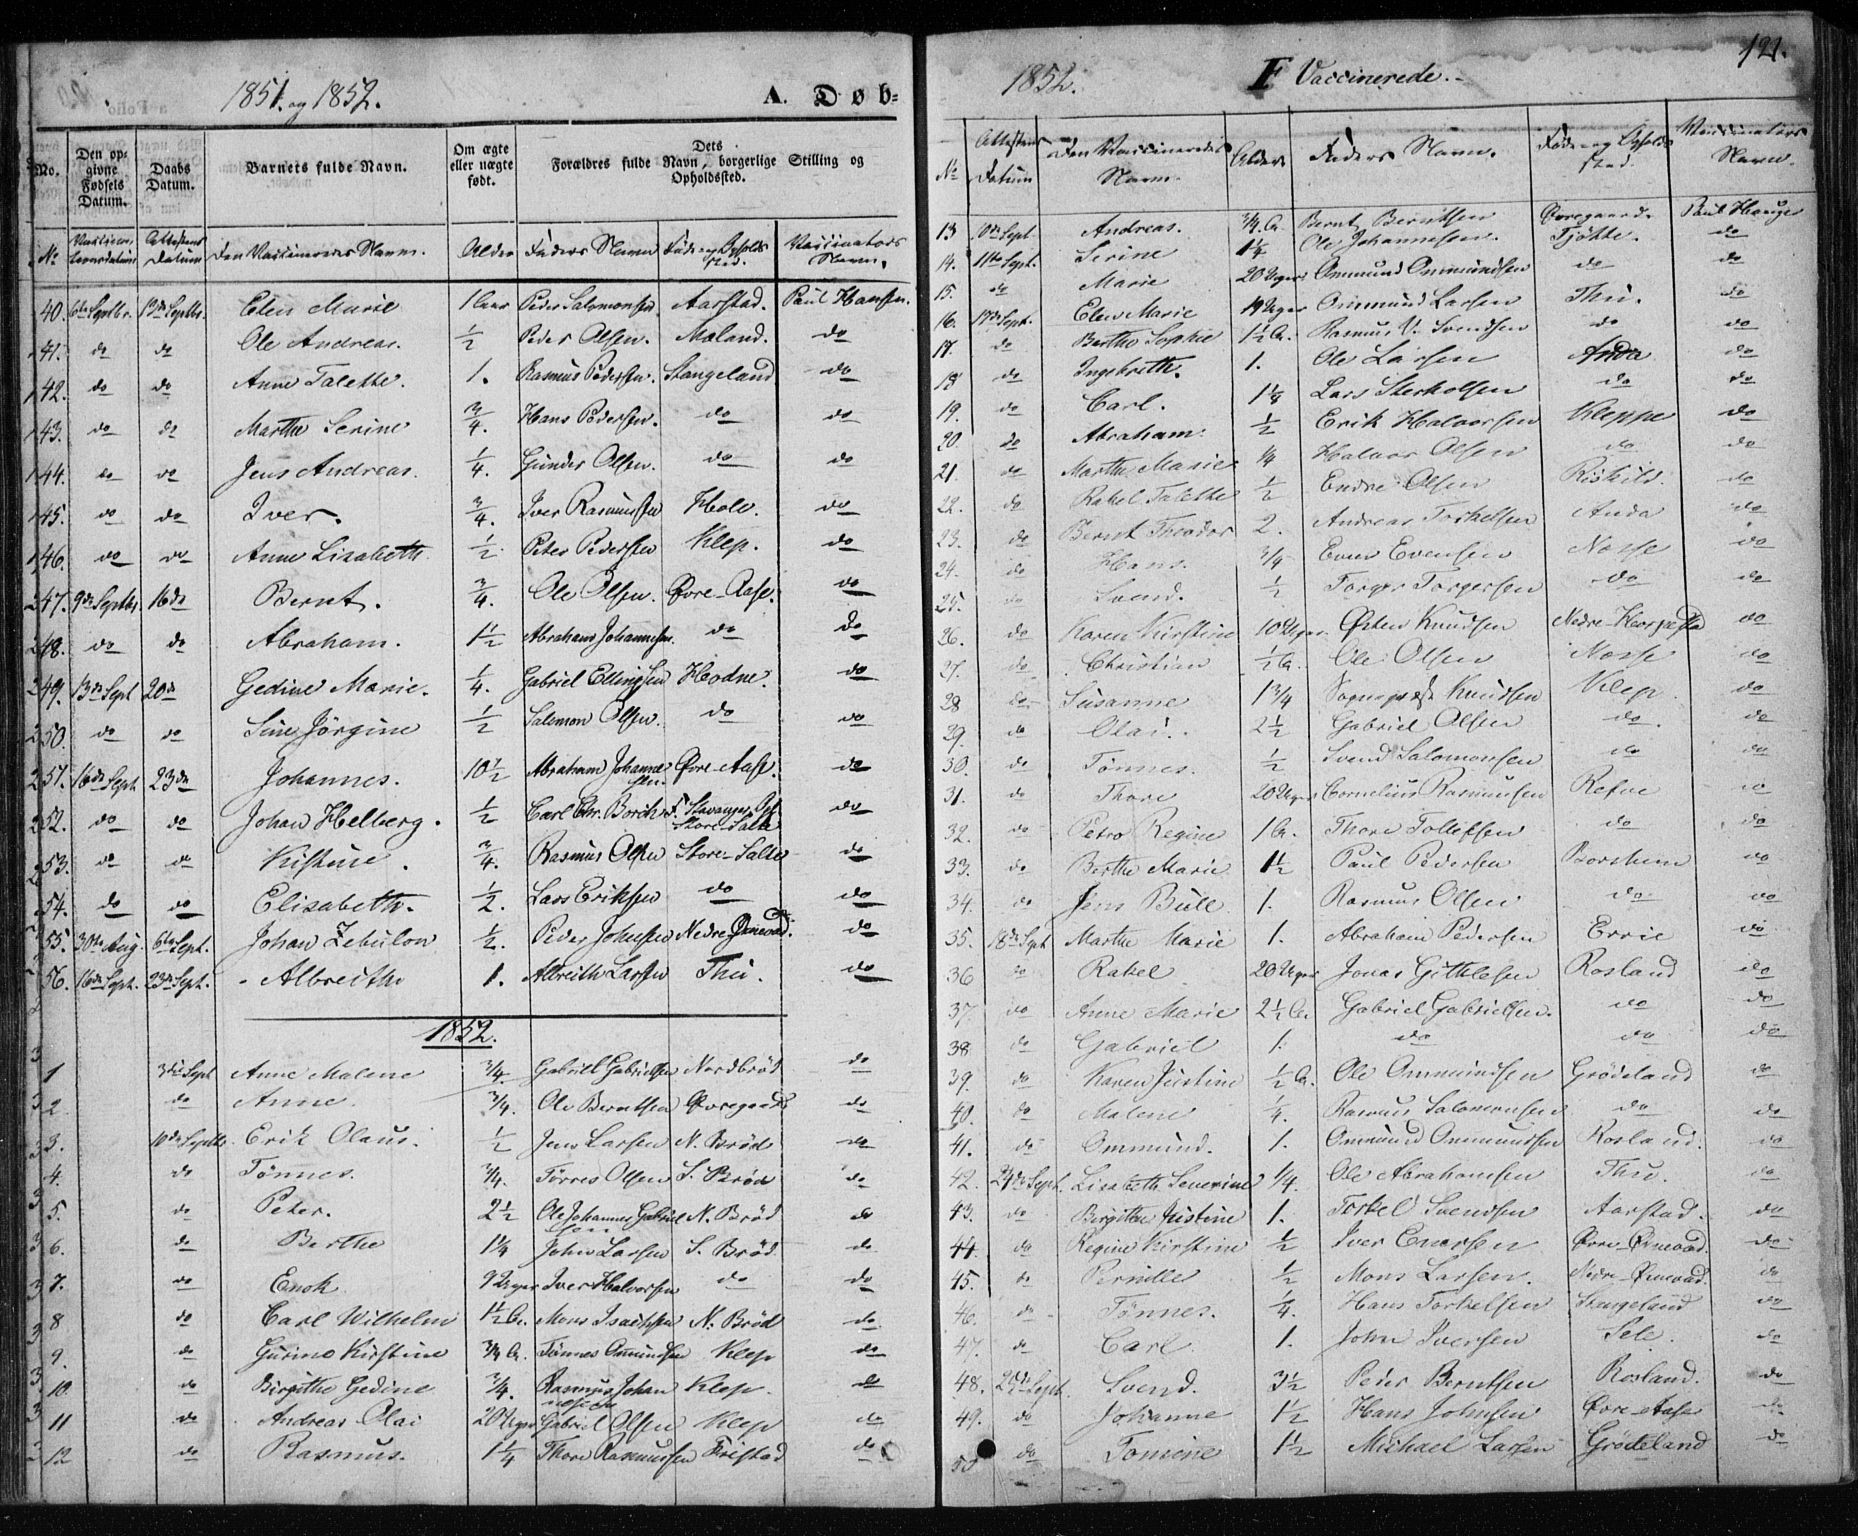 1851. og 1852.
A. Døb=
No.
Den opgivne Fødsels Datum.
Daabs Datum.
Barnets fulde Navn.
Om ægte eller uægte født.
Forældres fulde Navn, borgerlige Stilling og Dets Opholdssted.
No Vaccinations datum Attestens Datum Den Vaccineredes Navn. Alder Faders Navn Føde og Opholds sted. Vaccinators Navn.
40. 6te Septbr. 13de Septbr. Elen Marie 1 Aar Peder Salomonsen. Aarstad. Paul Haugen.
41. do do Ole Andreas. 1/2 Peder Olsen. Mæland. do
42. do do Anne Talette. 1. Rasmus Pedersen. Stangeland do
43. do do Marthe Serine 3/4. Hans Pedersen. do do
44. do do Jens Andreas. 1/4. Gunder Olsen. do do
45. do do Iver. 3/4. Iver Rasmussen Hole. do
46. do do Anne Lisabeth 1/2. Peter Pedersen Klep. do
47. 9de Septbr. 16de Bernt. 3/4. Ole Olsen. Øvre-Aase. do
48. do do Abraham. 1 1/2 Abraham Johannesen do do
49. 13de Sept 20de Gedine Marie. 1/4. Gabriel Ellingsen Hodne. do
50. do do Sine Jørgine 1/2 Salomon Olsen. do do
51. 16de Sept. 23de Johannes. 10 1/2 Abraham Johannessen Øvre-Aase. do
52. do do Johan Helberg. 1/2 Carl Chr. Borch F. Stavanger, Op. Store-Salte do
53. do do Kistine. 3/4. Rasmus Olsen Store-Salte do
54. do do Elisabeth. 1/2. Lars Eriksen do do
55. 30te Aug. 6te Sept. Johan Zebulon 1/2. Peder Johnsen Nedre Øxnevad. do
56. 16de Sept. 23de Sept. Albreithe 1. Albreith Larsen Thu. do
1852.
1 3die Sept Anne Malene 3/4. Gabriel Gabrielsen Nordbrød do
2. do Anne. 3/4. Ole Berntsen Øvregaard do
3. 10de Septbr. Erik Olaus. 1/2 Jens Larsen N. Brød do
4. do Tønnes. 3/4. Torres Olsen S. Brød do
5. do Peter. 2 1/2 Ole Johannes Gabrielsen N. Brød do
6. do Berthe 1 1/4 John Larsen S. Brød. do
7. do Enok 9 Uger Iver Halvorsen do do
8 do Carl Wilhelm 1 1/2 A. Mons Isachsen N. Brød do
9. do Gurine Kirstine 3/4 A. Tønnes Omundsen Klep do
10. do Birgithe Gedine 3/4. Rasmus Johannesen Klep. do
11 do Andreas Olai 20 Uger Gabriel Olsen Klep do
12 do Rasmus. 1 1/4 Thore Rasmussen Friestad do
1852.
F Vaccinerede.
121.
No Attestens Datum Den Vaccineredes Navn. Alder Faders Navn. Føde og Opholds sted. Vaccinators Navn.
13 10de Sept Andreas. 3/4 A. Bernt Berntsen Øvregaard. Paul Hauge
14. 11te Sept. Serine 1 1/4 Ole Johannesen. Tjøtte. do
15. do Marie 20 Uger Ommund Ommundsen do do
16. 17de Sept. Elen Marie 19 Uger Ommund Larsen Thu. do
17. do Berthe Sophie 1 1/2 A. Rasmus V. Svendsen do do
18 do Ingebrith. 1. Ole Larsen Anda do
19. do Carl. 1 1/4 Lars Sterkolsen do do
20. do Abraham. 1/2 Erik Halvorsen Kleppe do
21. do Marthe Marie 1/4 Halvor Olsen do do
22. do Rakel Talette 1/2 Endre Olsen Riskild. do
23. do Bernt Theodor 2. Andreas Torkelsen Anda do
24. do Hans. 3/4 Even Evensen Nosse do
25. do Svend. 1/2 Torger Torgersen do do
26. do Karen Kirstine 10 Uger Østen Knudsen Nedre- do
27. do Christian 1/2 A. Ole Olsen Nosse do
28 do Susanne 1 3/4 Sognepræst Knudsen Klep do
29. do Olai. 2 1/2 Gabriel Olsen do. do
30. do Tønnes. 1/2 Svend Salomonsen do do
31. do Thore 20 Uger Cornelius Rasmussen Refve do
32. do Petro Regine 1 A. Thore Tollefsen do do
33. do Berthe Marie 1 1/2 Paul Pedersen Borshem do
34. do Jens Bull 1. Rasmus Olsen do do
35. 18de Sept Marthe Marie 1. Abraham Pedersen Ervie do
36 do Rakel 20 Uger Jonas Gitlesen Rosland do
37. do Anne Marie 2 1/2 A. Gabriel Gabrielsen. do do
38 do Gabriel 1. do do do
39. do Karen Justine 1/2 A. Ole Ommundsen Grødeland do
40. do Malene 1/4. Rasmus Salomonsen do do
41. do Ommund. 1. Ommund Ommundsen Rosland. do
42. 24de Sept. Lisabeth Severine 1/4. Ole Abrahamsen Thu. do
43. do Birgithe Justine 1. Torkel Svendsen Aarstad. do
44. do Regine Kirstine 1/2 Iver Enersen Øvre-Øxnevad. do
45. do Pernille 1/2 Mons Larsen. Nedre-Øxnevad. do
46. do Tønnes. 1/4. Hans Torkelsen Stangeland do
47. do Carl. 1. John Iversen Sele. do
48. Sept. Svend. 3 1/2 Peder Berntsen Rosland. do
49. do Johanne 1 1/2 Hans Johnsen Øvre-Aase do
50 do Tomine 1 1/2 Michael Larsen Grødeland do